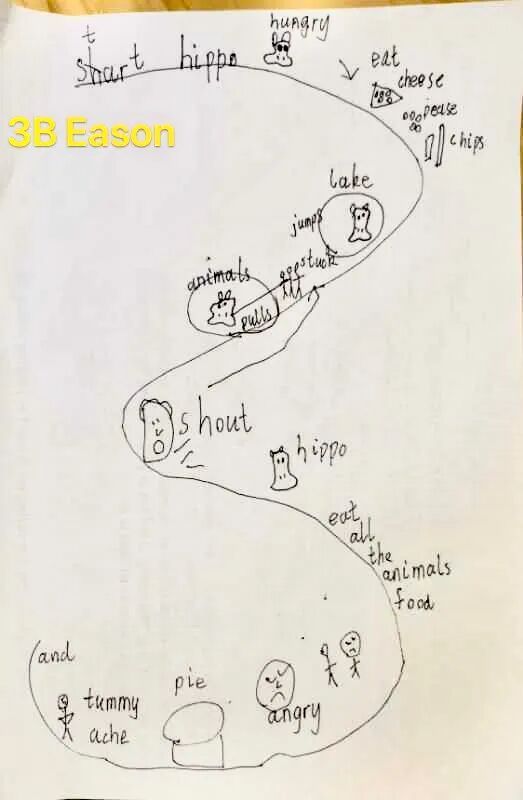 t
shart hippo hungry
3B Eason
eat
cheese
pease
chips
lake
jumps
stuck
animals
pulls
shout
hippo
eat
all
the
animals
food
angry
pie
tummy
ache
and